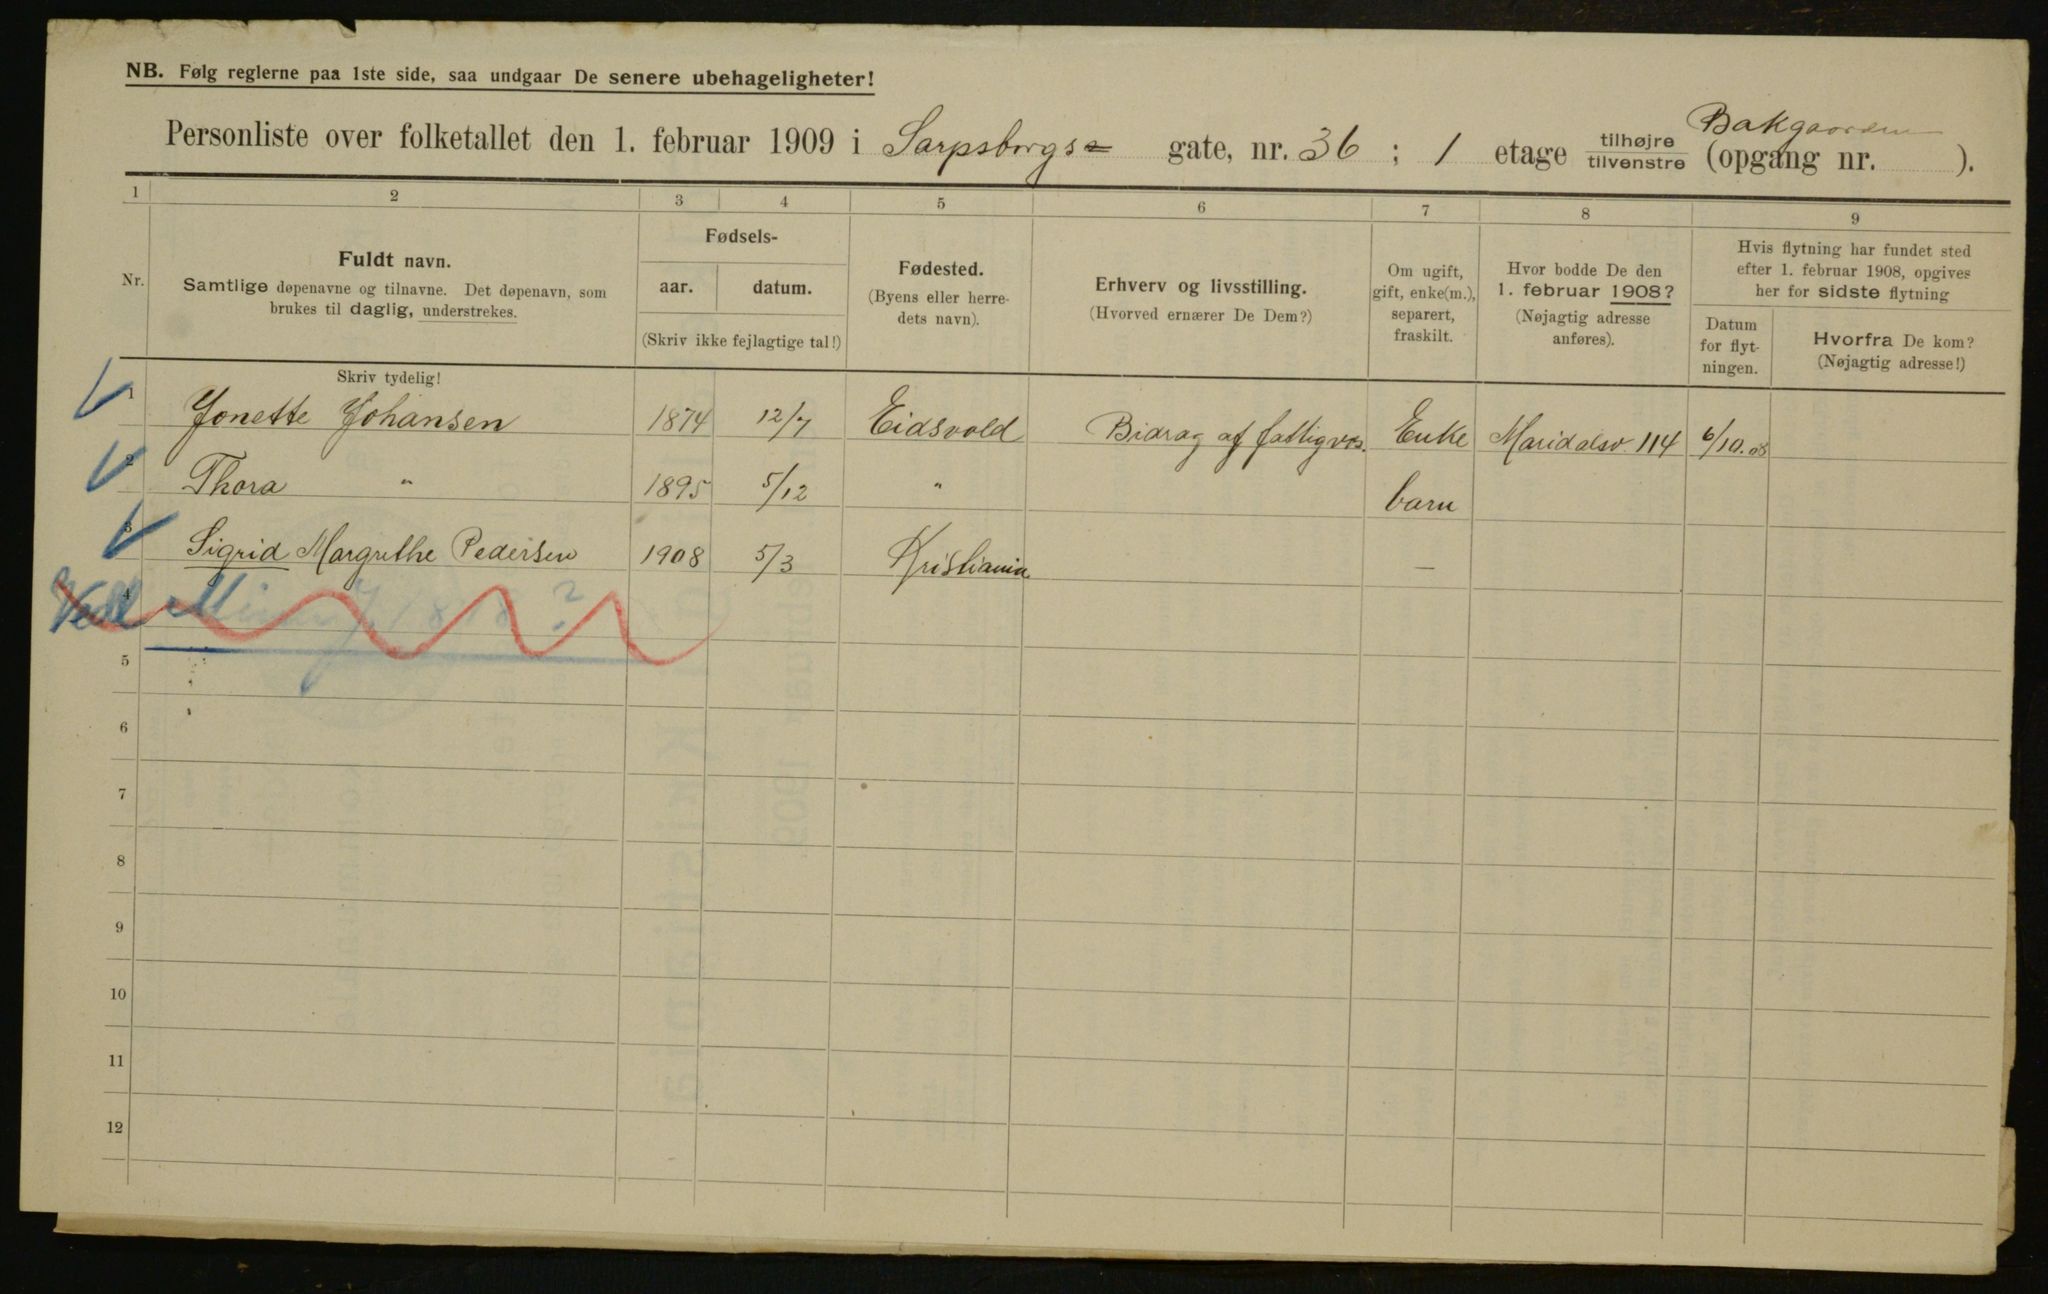 NB. Følg reglerne paa 1ste side, saa undgaar De senere ubehageligheter!
Personliste over folketallet den 1. februar 1909 i Sarpsborgs gate, nr. 36 ; 1 etage tilhøjre tilvenstre (opgang nr. ).
Bakgaarden
1 2 3 4 5 6 7 8 9
Nr.
Fuldt navn.
Samtlige døpenavne og tilnavne. Det døpenavn, som
brukes til daglig, understrekes.
Fødsels-
aar. datum.
(Skriv ikke fejlagtige tal!)
Fødested.
(Byens eller herre-
dets navn).
Erhverv og livsstilling.
(Hvorved ernærer De Dem?)
Om ugift,
gift, enke(m.),
separert,
fraskilt.
Hvor bodde De den
1. februar 1908?
(Nøjagtig adresse
anføres).
Hvis flytning har fundet sted
efter 1. februar 1908, opgives
her for sidste flytning
Datum
for flyt-
ningen.
Hvorfra De kom?
(Nøjagtig adresse!)
Skriv tydelig!
1 Jonette Johansen 1874 12/7 Eidsvold Bidrag af fattigvs. Enke Maridalsv. 114 6/10.08
2 Thora " 1895 5/12 " barn
3 Sigrid Margrethe Pedersen 1908 5/3 Kristiania —
4
5
6
7
8
9
10
11
12